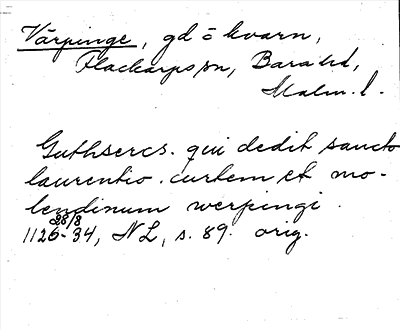 Värpinge, gd o kvarn,
Flackarps sn, Bara hd,
Malm. l.
Guthsercs. qui dedit sancto
laurentio. curtem et mo-
lendinum werpingi.
28/8
1126-34, NL, s. 89. orig.